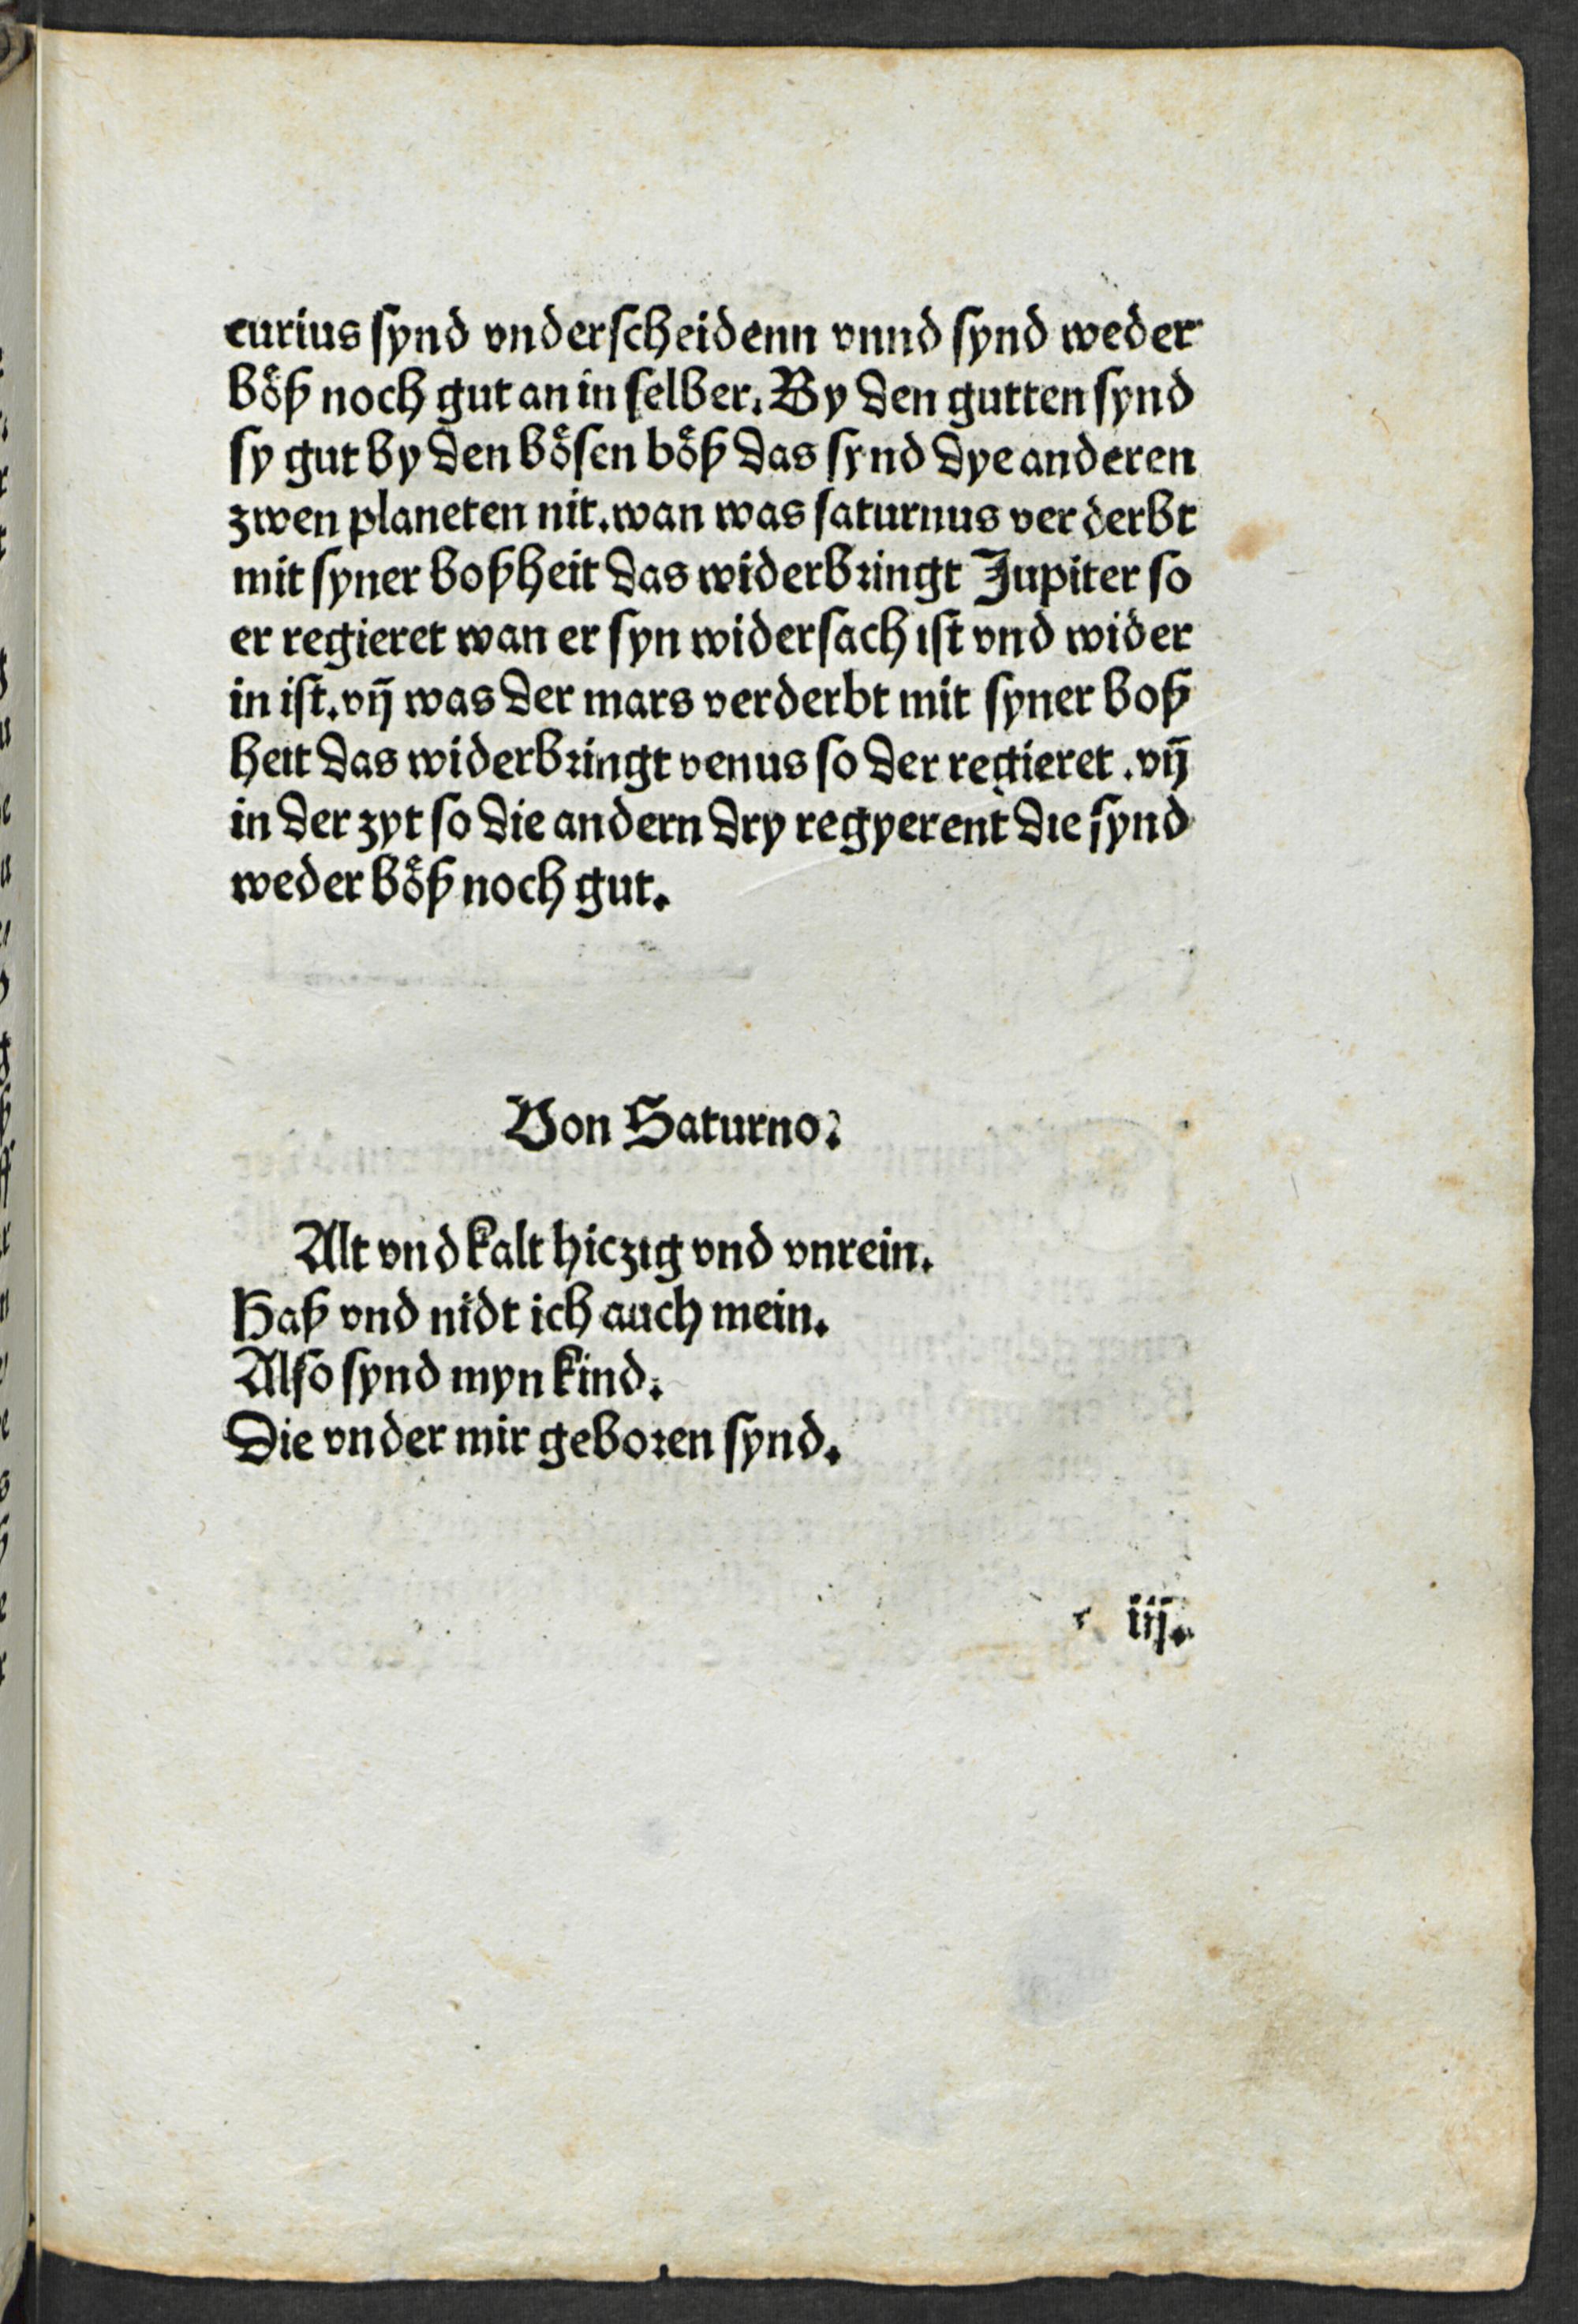 curius synd vnderscheidenn vnnd synd weder
böß noch gut an in selber. By den gutten synd
sy gut by den bösen böß das synd dye anderen
zwen planeten nit. wan was saturnus verderbt
mit syner boßheit das widerbringt Jupiter so
er regieret wan er syn widersach ist vnd wider
in ist. vn̄ was der mars verderbt mit syner boß
heit das widerbringt venus so der regieret . vn̄
in der zyt so die andern dry regyerent die synd
weder böß noch gut.
Von Saturno.
Alt vnd kalt hiczig vnd vnrein.
Haß vnd nidt ich auch mein.
Also synd myn kind.
Die vnder mir geboren synd.
iij.